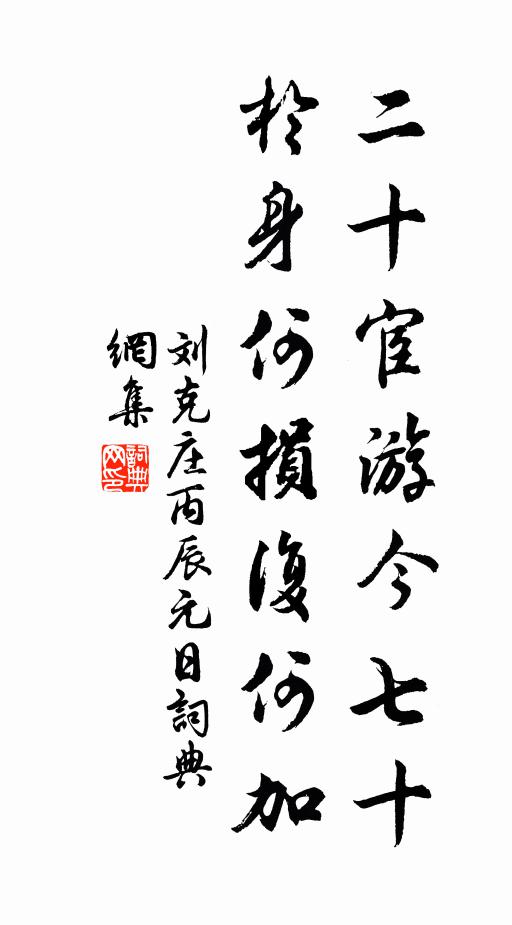 二十宦游今七十
於身何損復何加
刘克庄丙辰元日詞典
網集
詞典
网印